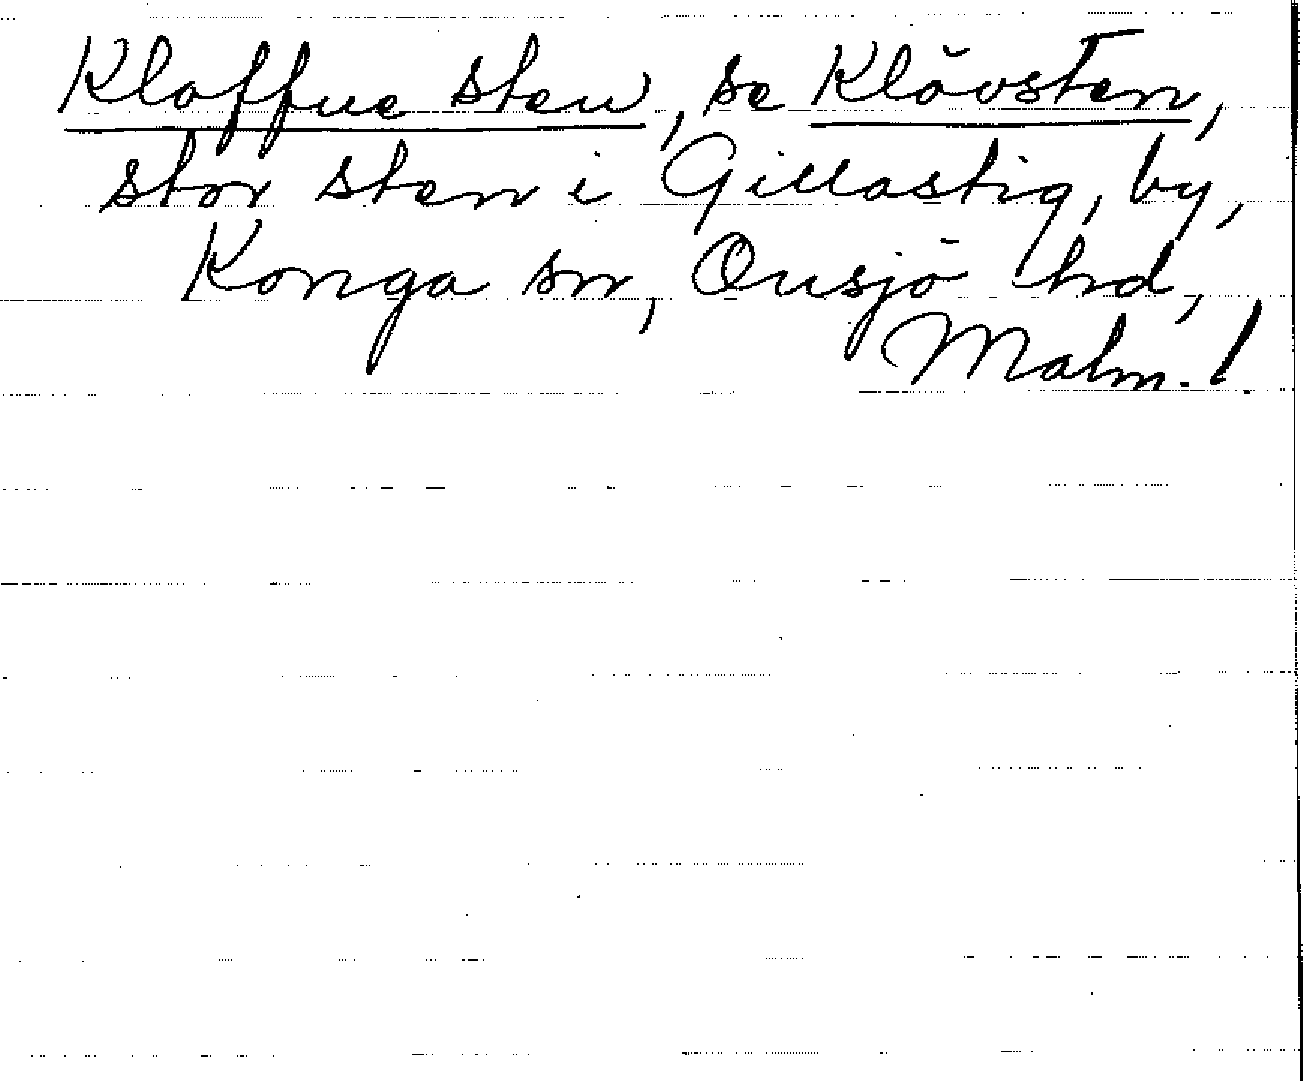 Kloffue sten, se Klövsten,
stor sten i Gillastig, by,
Konga sn, Onsjö hd,
Malm. l